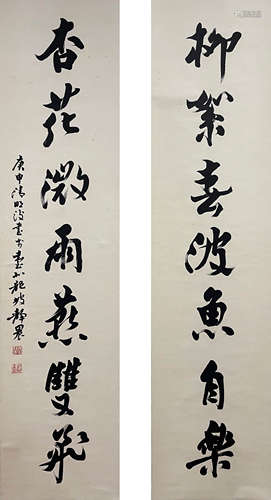 柳絮春波魚自樂
杏花微雨燕雙飛
庚申清明後書於臺北龍坡靜農